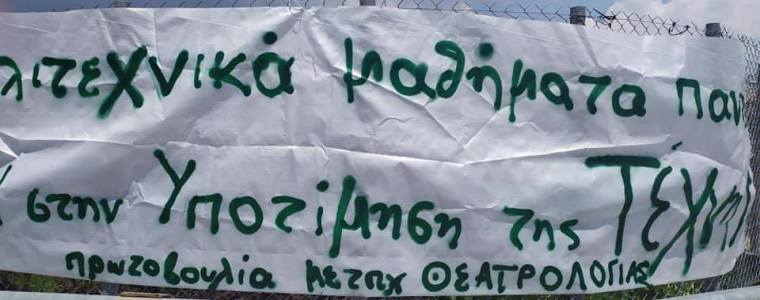 λιτεχνικά μαθήματα παν
στην Υποτίμηση της Τέχνη
πρωτοβουλία μετπχ ΘΕΑΤΡΟΛΟΓΙΑΣ